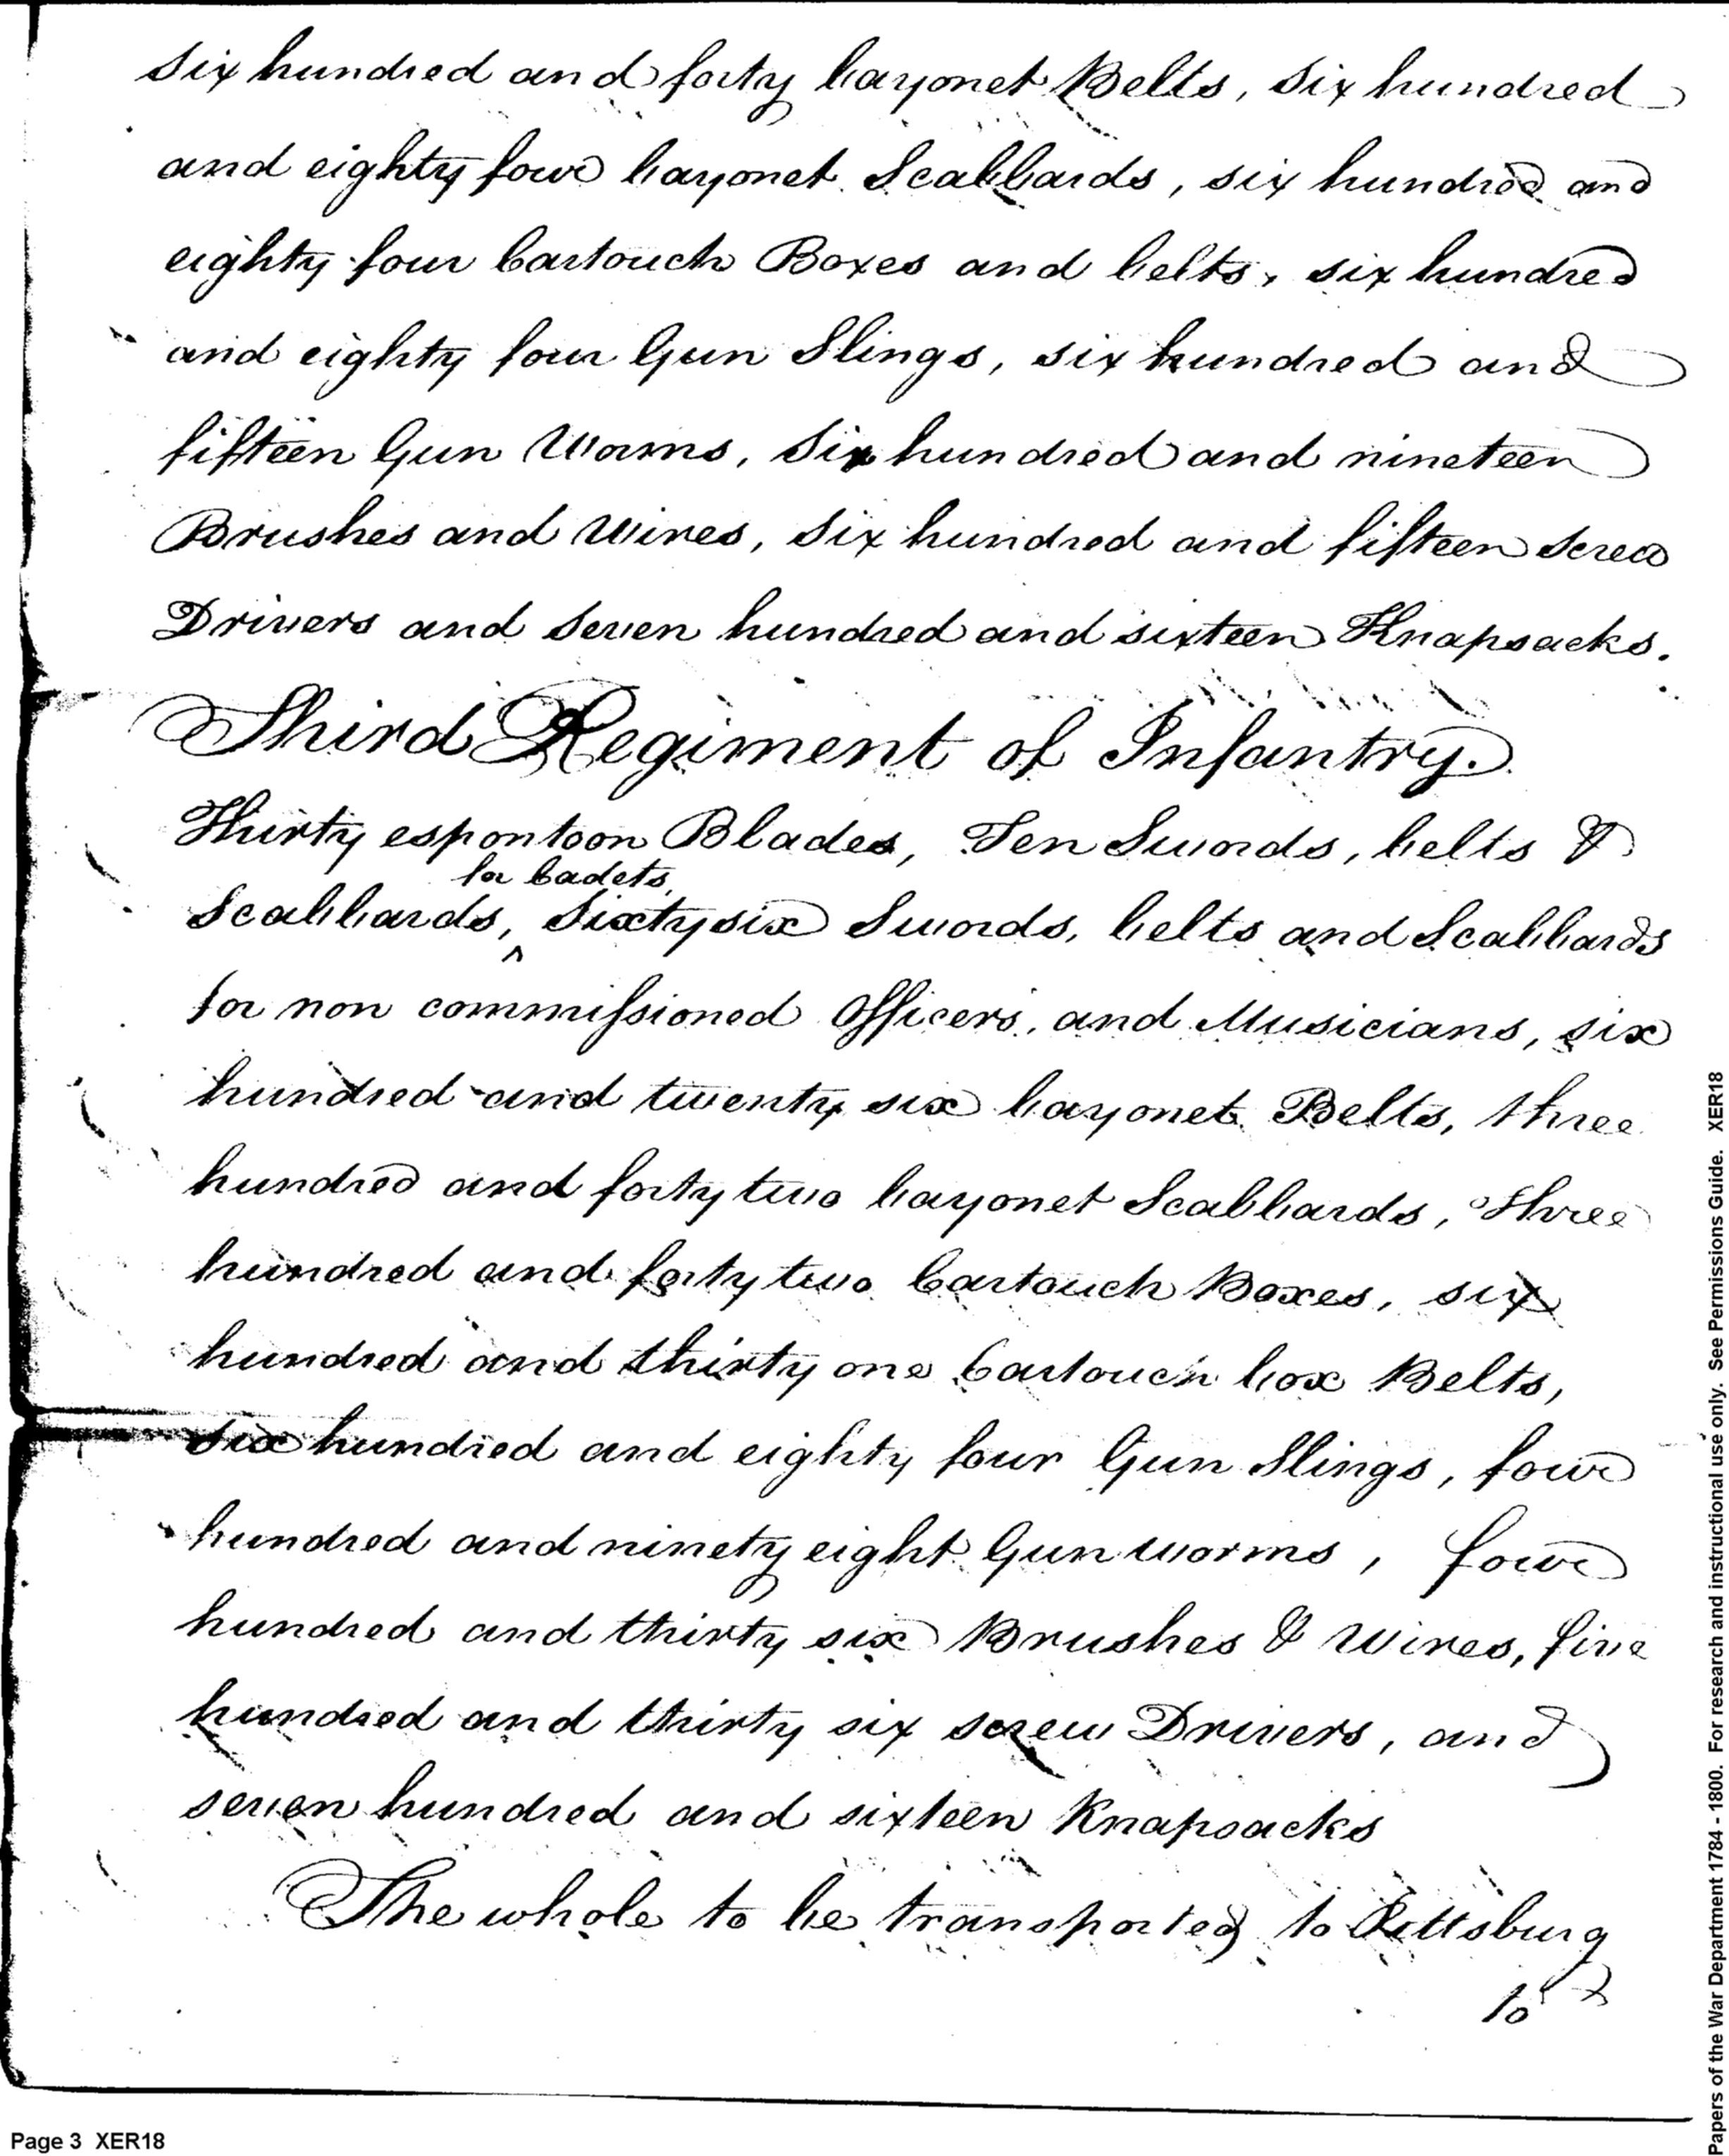 Six hundred and forty bayonet Belts, Six hundred
and eighty four bayonet Scabbards, six hundred and
eighty four Cartouch Boxes and belts, six hundred
and eighty four Gun Slings, six hundred and
fifteen Gun Worms, Six hundred and nineteen
Brushes and Wires, Six hundred and fifteen Screw
Drivers and Seven hundred and sixteen Knapsacks.
Third Regiment of Infantry.
Thirty espontoon Blades, Ten Swords, belts &
for Cadets,
Scabbards, ^ Sixty six Swords, belts and Scabbards
for non commissioned Officers, and Musicians, six
hundred and twenty six bayonet Belts, three
hundred and forty two bayonet Scabbards, Three
hundred and forty two Cartouch Boxes, six
hundred and thirty one Cartouch box Belts,
six hundred and eighty four Gun Slings, four
hundred and ninety eight Gun worms, four
hundred and thirty six Brushes & Wires, five
hundred and thirty six screw Drivers, and
seven hundred and sixteen Knapsacks
The whole to be transported to Pittsburg
to
Page 3 XER18
Papers of the War Department 1784 - 1800. For research and instructional use only. See Permissions Guide. XER18